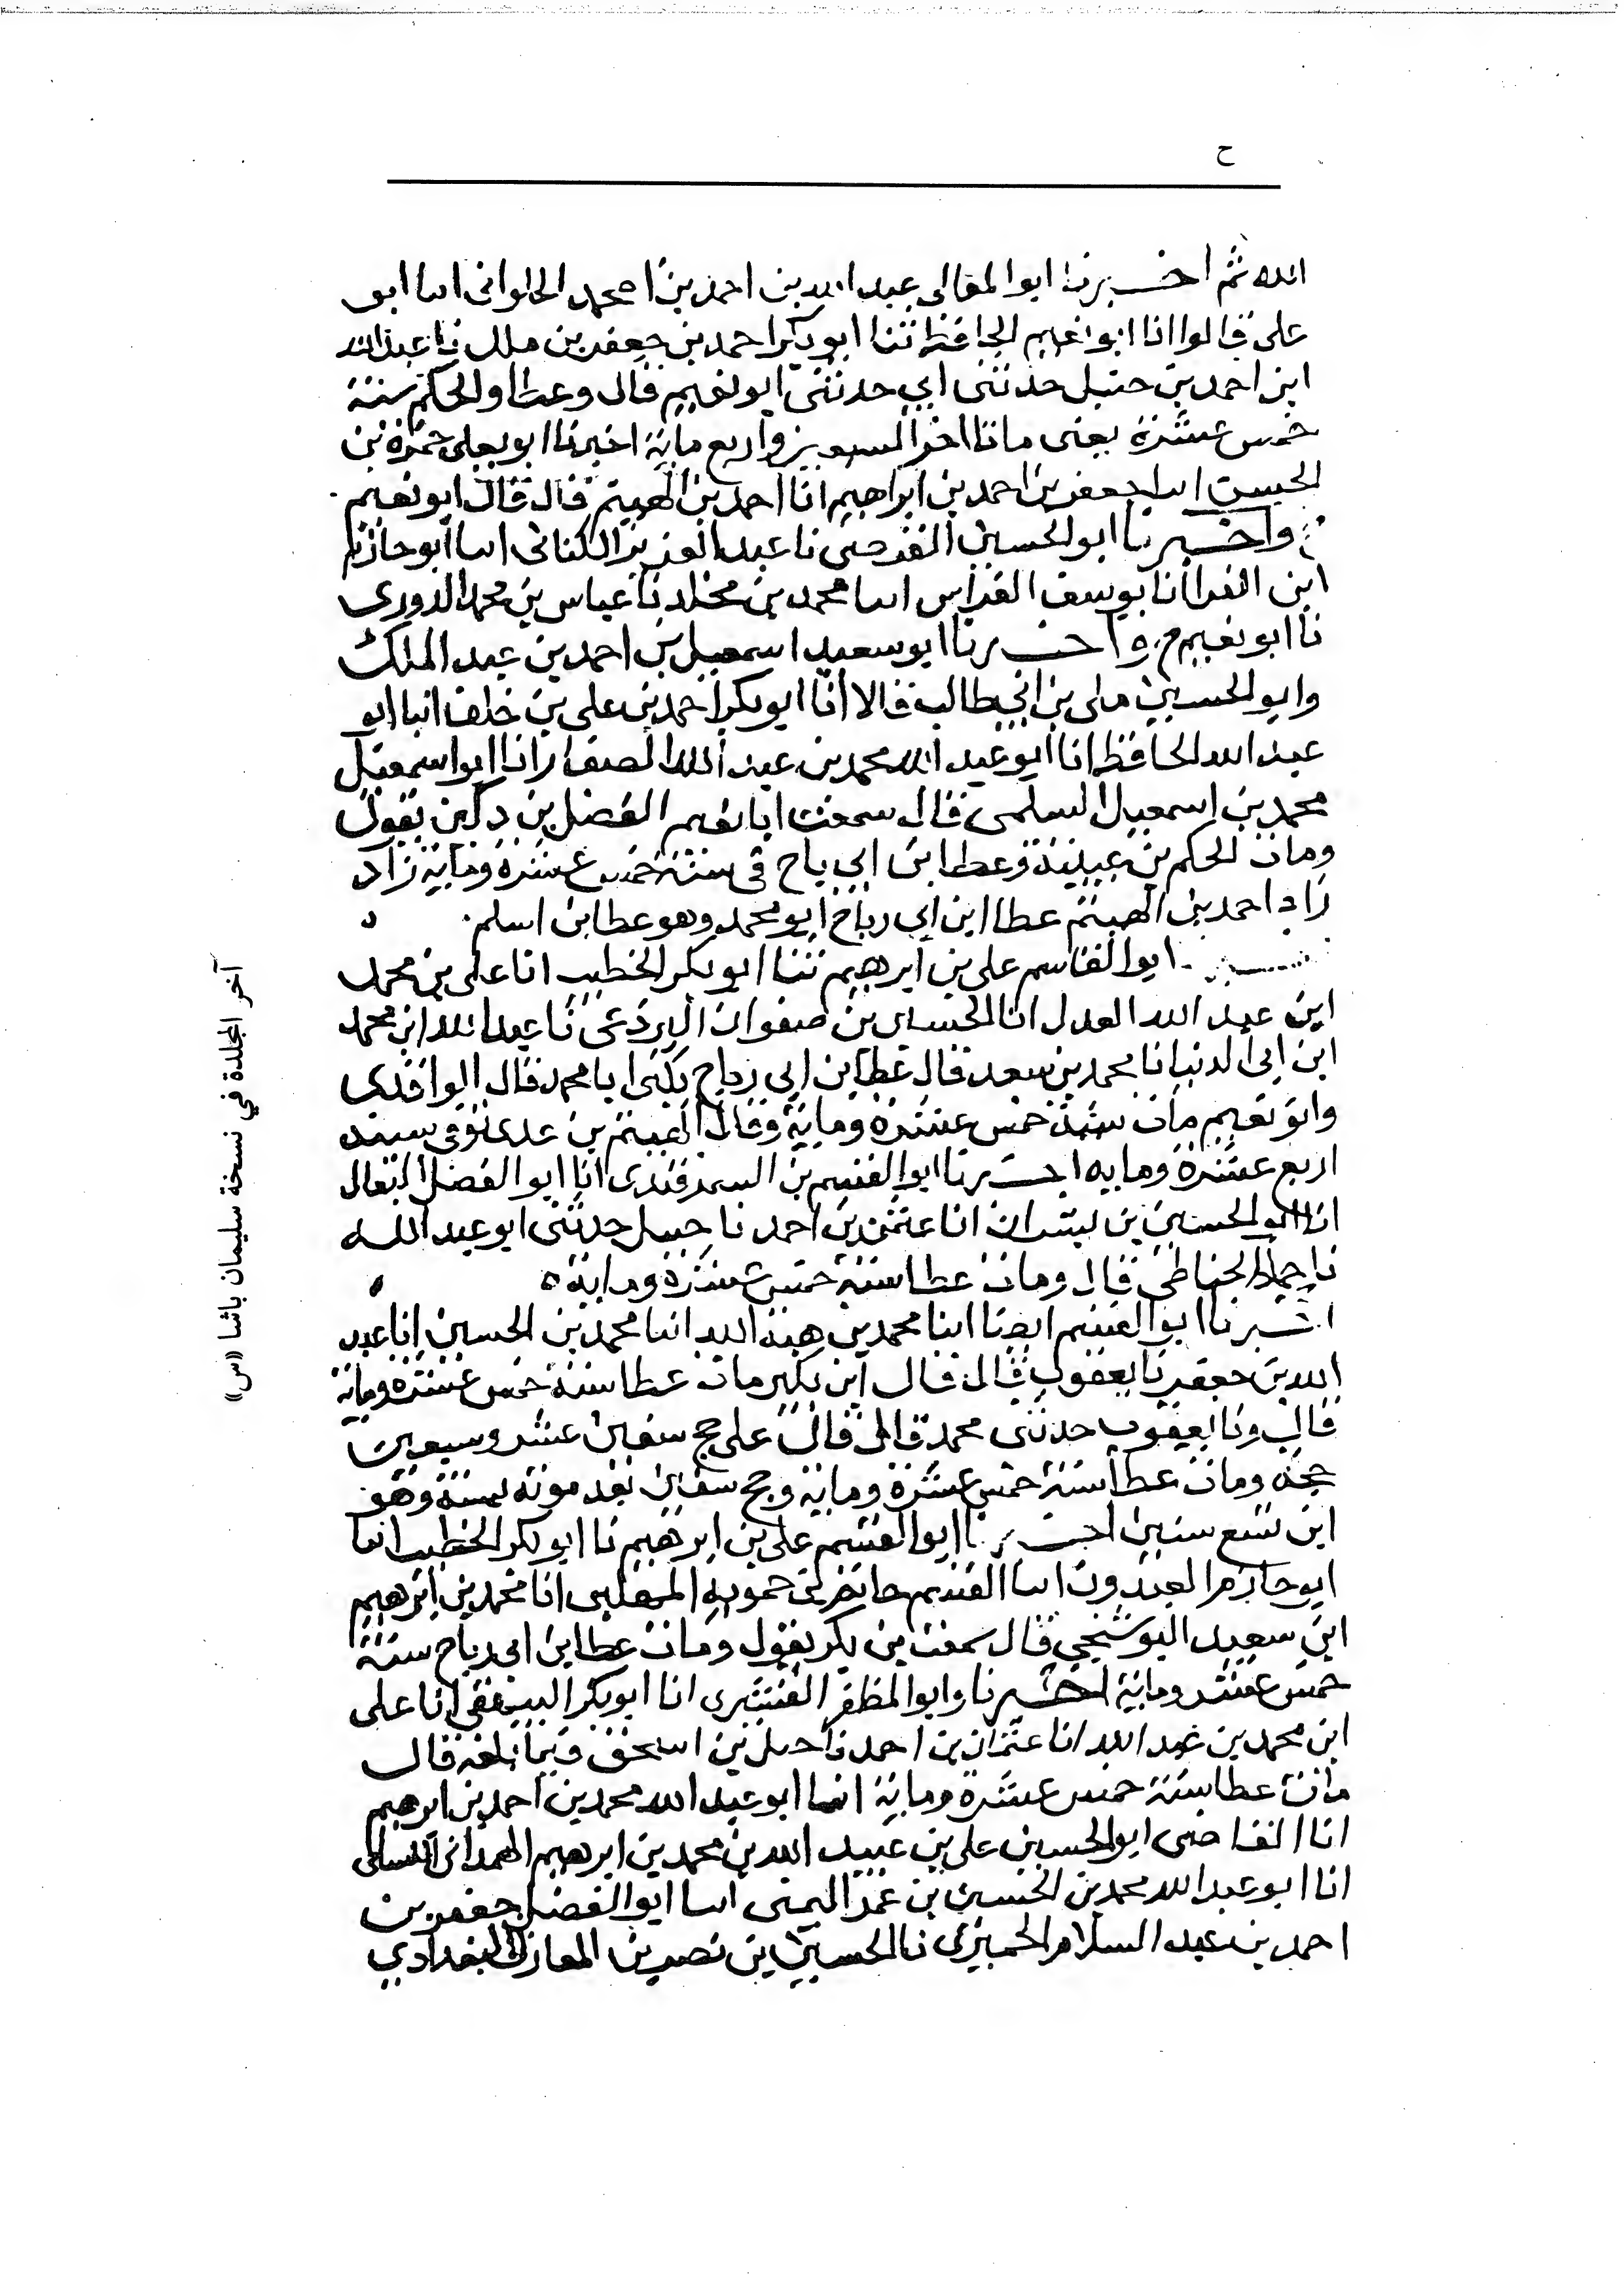 ح
الله ثم اخبرنا ابوا لمعالى عبد الله بن احمد بن محمد الحلوانى انبا ابو
على قالوا انا ابو نعيم الحافظ ثنا ابو بكر احمد بن جعفر بن ملك نا عبد الله
ابن احمد بن حنبل حدثنى ابي حدثنى ابو نعيم قال وعطا والحكم سنة
خمس عشرة يعنى ماتا واربع ماية اخبرنا ابو يعلى حمزة بن
الحسن انبا جعفر بن احمد بن ابراهيم انا احمد بن الهيثم قال قال ابو نعيم
واخبرنا ابو الحسين الفرضى نا عبد العزيز الكنانى انبا ابو حازم
ابن الفرا انا يوسف القواس انبا محمد بن مخلد نا عباس بن محمد الدورى
نا ابو نعيم ح واخبرنا ابو سعيد اسمعيل بن احمد بن عبد الملك
وابو الحسين ملى بن ابي طالب قالا انا ابو بكر احمد بن على بن خلف انبا ابو
عبد الله الحافظ انا ابو عبد الله محمد بن عبد الله الصفار انا ابو اسمعيل
محمد بن اسمعيل السلمى قال سمعت ابا نعيم الفضل بن دكين يقول
ومات الحكم بن عيينة وعطا ابن ابي باح في سنة خمس عشرة وماية زاد
زاد احمد بن الهيثم عطا ابن ابي رباح ابو محمد وهو عطا بن اسلم
ابوا لقاسم على بن ابرهيم ثنا ابو بكر الخطيب انا على بن محمد
ابن عبد الله العدل انا الحسين بن صفوان البردعى نا عبد الله ابن محمد
ابن ابي الدنيا نا محمد بن سعد قال عطا بن ابي رباح يكنى ابا محمد قال الواقدى
وابو نعيم مات سنة خمس عشرة وماية وقال الهيثم بن عدى توفي سنة
اربع عشرة وماية اخبرنا ابو القسم بن السمرقندى انا ابو الفضل البقال
انا ابو الحسين بن بشران انا عثمن بن احمد نا حنبل حدثنى ابو عبد الله
نا حماد الخياط قال ومات عطا سنة خمس عشرة وماية ه
اخبرنا ابو القسم ايضا انبا محمد بن هبة الله انبا محمد بن الحسين انا عبد
الله بن جعفر نا يعقوب قال قال ابن بكير مات عطا سنة خمس عشرة وماية
قال ونا يعقوب حدثنى محمد قال قال على حج سفين عشر وسبعين
حجة ومات عطا سنة خمس عشرة وماية وحج سفين بعد موته بسنة وهو
ابن تسع سنين اخبرنا ابو القسم على بن ابرهيم نا ابو بكر الخطيب انبا
ابو حازم العبدوى انبا القسم بن حمويه المهلبى انا محمد بن ابرهيم
ابن سعيد البوشنجي قال سمعت بن بكر يقول ومات عطا ابن ابي رباح سنة
خمس عشر وماية اخبرنا وابو المظفر القشيرى انا ابو بكر البيهقي انا على
ابن محمد بن عبد الله انا عثمان بن احمد نا حنبل بن اسحق فيما بلغه قال
مات عطا سنة خمس عشرة وماية انبا ابو عبد الله محمد بن احمد بن ابرهيم
انا القاضى ابو الحسن على بن عبيد الله بن محمد بن ابرهيم الهمدانى
انا ابو عبد الله محمد بن الحسين بن عمر اليمنى انبا ابو الفضل جعفر بن
احمد بن عبد السلام الحميرى نا الحسين بن نصر بن المعارك البغدادي
آخر المجلدة في نسخة سليمان باشا «س»